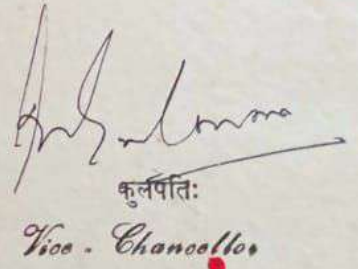 कुलपतिः
Vice - Chancellor